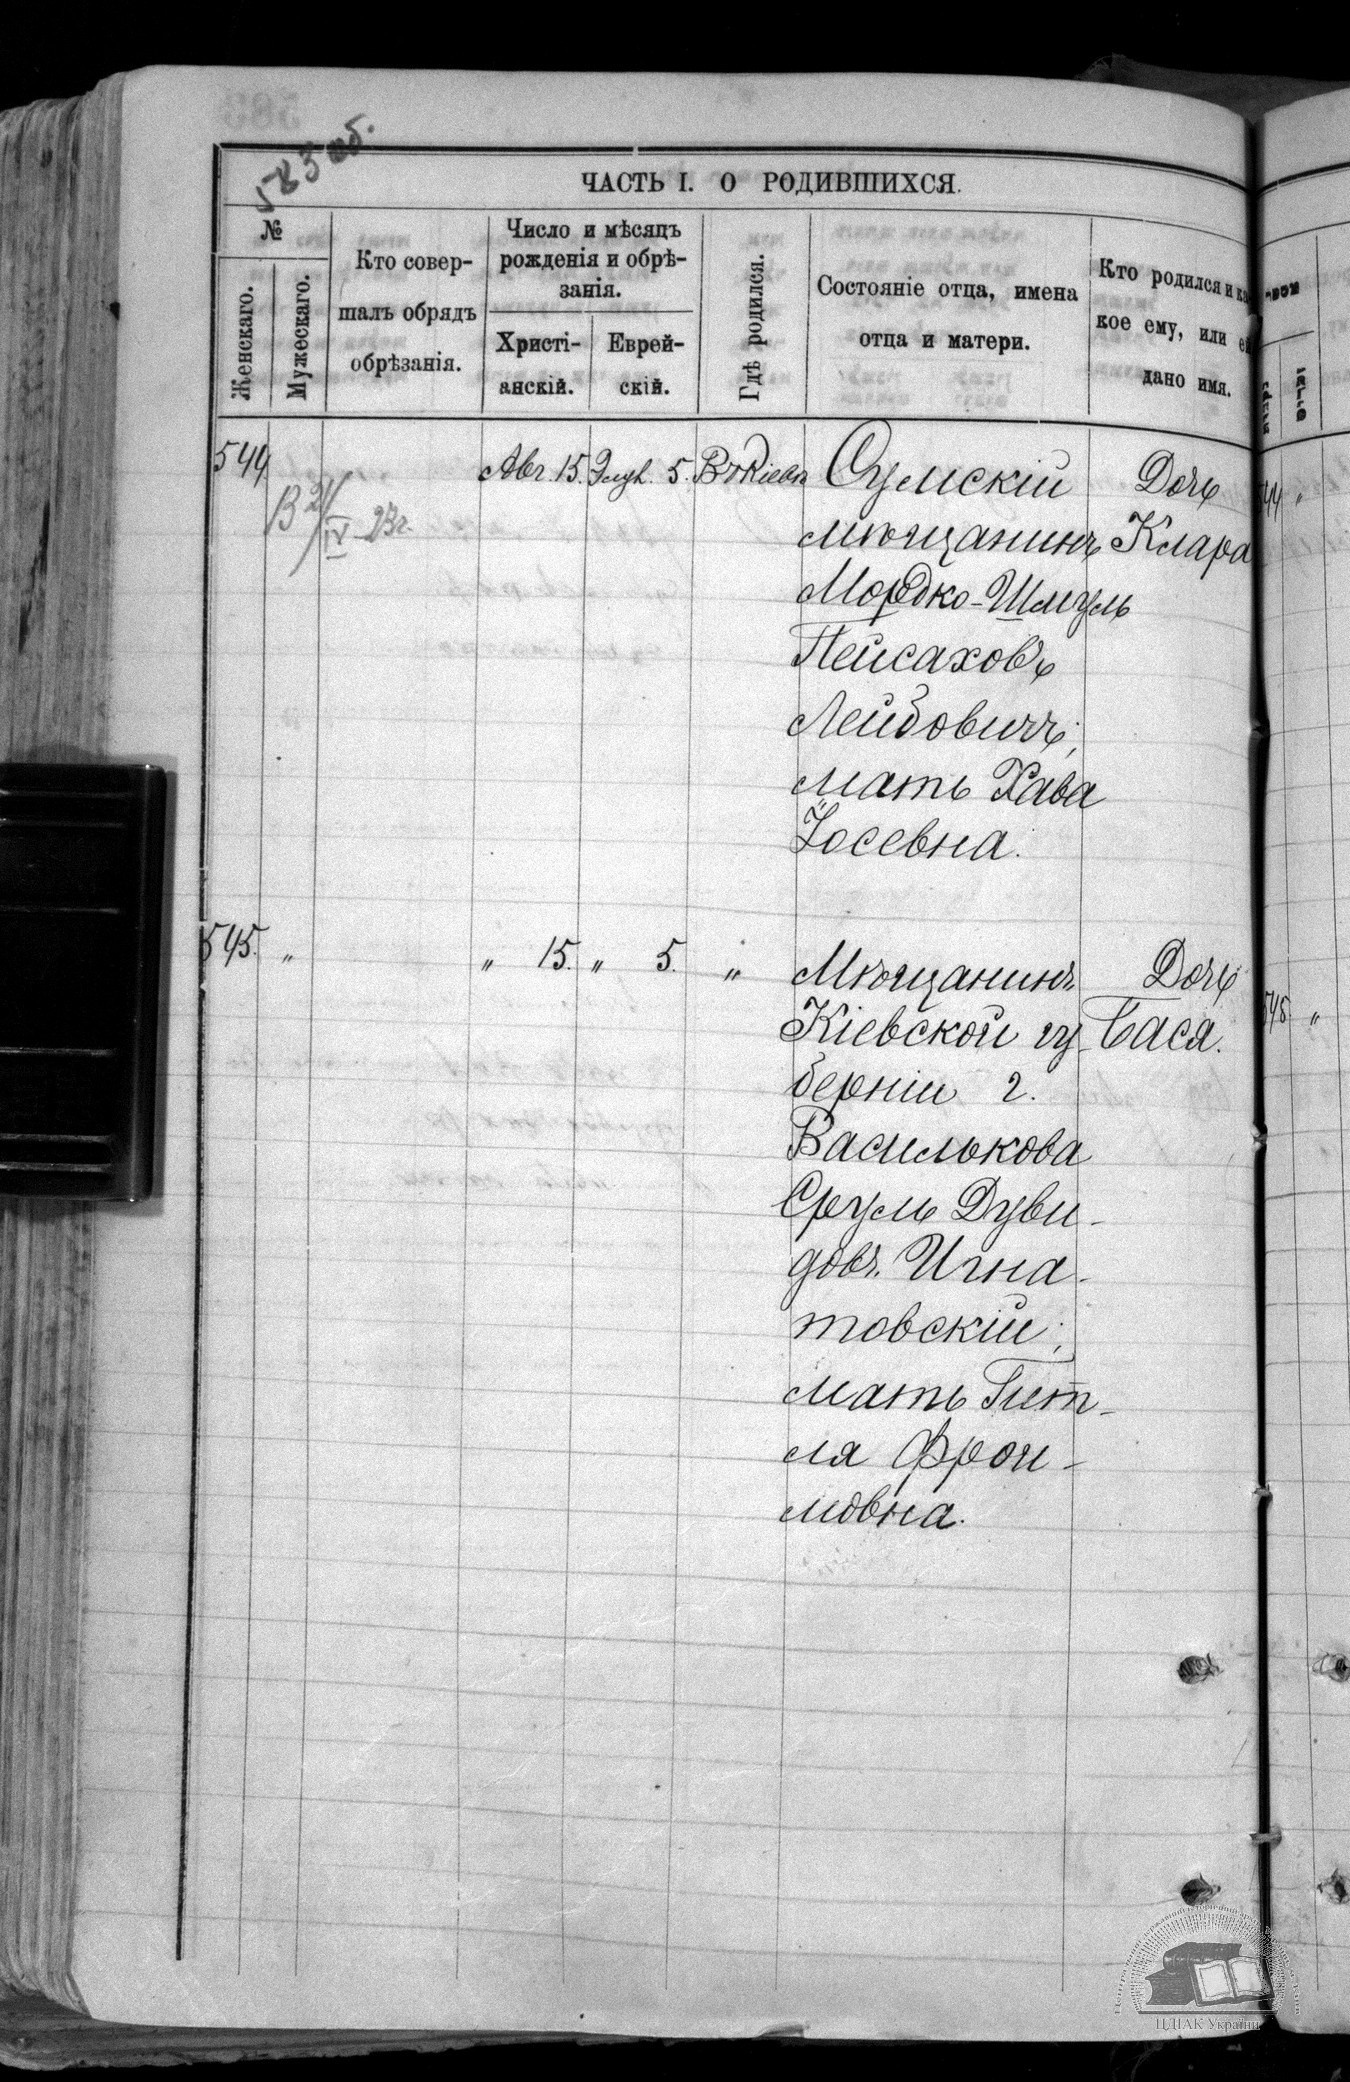 583 об.
ЧАСТЬ I. О РОДИВШИХСЯ.
№
Женскаго.
Мужескаго.
Кто совер-
шалъ обрядъ
обрѣзанія.
Число и мѣсяцъ
рожденія и обрѣ-
занія.
Христі-
анскій.
Еврей-
скій.
Гдѣ родился.
Состояніе отца, имена
отца и матери.
Кто родился и ка
кое ему, или ей
дано имя.
544
В 24/IV 23 г.
Авг. 15.
Элул. 5.
Въ Кіевѣ
Сумскій
мѣщанинъ
Мордко-Шмуль
Пейсаховъ
Лейбовичъ;
мать Хава
Іосевна.
Дочь
Клара
545.
„
„ 15.
„ 5.
„
Мѣщанинъ
Кіевской гу-
берніи г.
Василькова
Сруль Дуви-
довъ Игна-
товскій;
мать Гит-
ля Фрои-
мовна.
Дочь
Бася.
44 „
545 „
ЦДІАК України